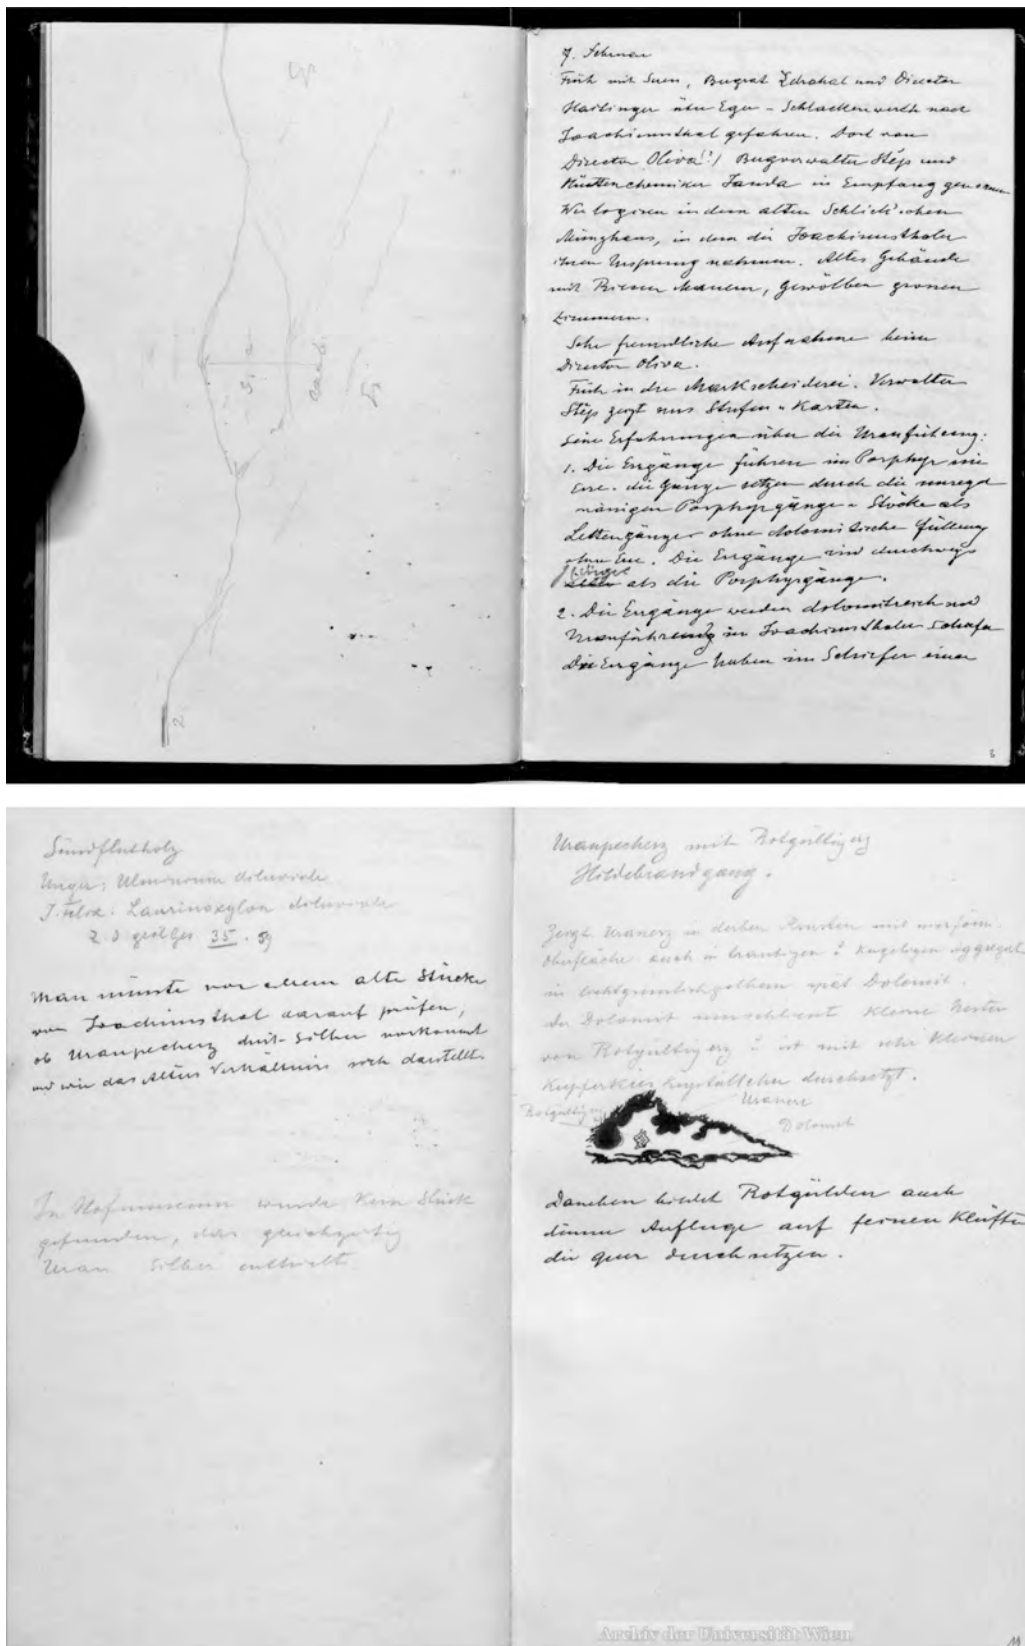 7. Februar
Früh mit Suess, Bergrat Zdrahal und Director
Haitinger über Eger - Schlackenwerth nach
Joachimsthal gefahren. Dort von
Director Oliva(?) Bergverwalter Štěp und
Hüttenchemiker Janda in Empfang genommen
Wir logiren in dem alten Schlick'schen
Münzhaus, in dem die Joachimsthaler
ihren Ursprung nahmen. Altes Gebäude
mit Riesen Mauern, Gewölben grossen
Zimmern.
Sehr freundliche Aufnahme beim
Director Oliva.
Früh in die Markscheiderei. Verwalter
Štěp zeigt uns Stufen u Karten.
Seine Erfahrungen über die Uranführung:
1. Die Erzgänge führen im Porphyr nie
Erze. die Gänge setzen durch die unregel
mässigen Porphyrgänge u Stöcke als
Lettengänge ohne dolomitische Füllung
ohne Erz. Die Erzgänge sind durchwegs
jünger
älter als die Porphyrgänge.
2. Die Erzgänge werden dolomitreich und
Uranführend im Joachimsthaler Schiefer
Die Erzgänge haben im Schiefer einen
3
2
Sündflutholz
Unger: Ulminium diluviale
J. Felix: Laurinoxylon diluviale
Z. d geol Ges 35. 59
Man müsste vor allem alte Stücke
von Joachimsthal darauf prüfen,
ob Uranpecherz mit Silber vorkommt
und wie das Alters Verhältnis sich darstellt.
Im Hofmuseum wurde kein Stück
gefunden, das gleichzeitig
Uran Silber enthielt
Uranpecherz mit Rotgültigerz
Hildebrandgang.
Zeigt Uranerz in derben Krusten mit nierförm.
Oberfläche auch in traubigen u kugeligen Aggregat
in lichtgrünlichgelbem spat Dolomit.
der Dolomit umschliesst kleine Nester
von Rotgültigerz u ist mit sehr kleinen
Kupferkies Kryställchen durchsetzt.
Rotgültigerz
Uranerz
Dolomit
Daneben bildet Rotgülden auch
dünne Anflüge auf feinen Klüften
die quer durchsetzen.
Archiv der Universität Wien